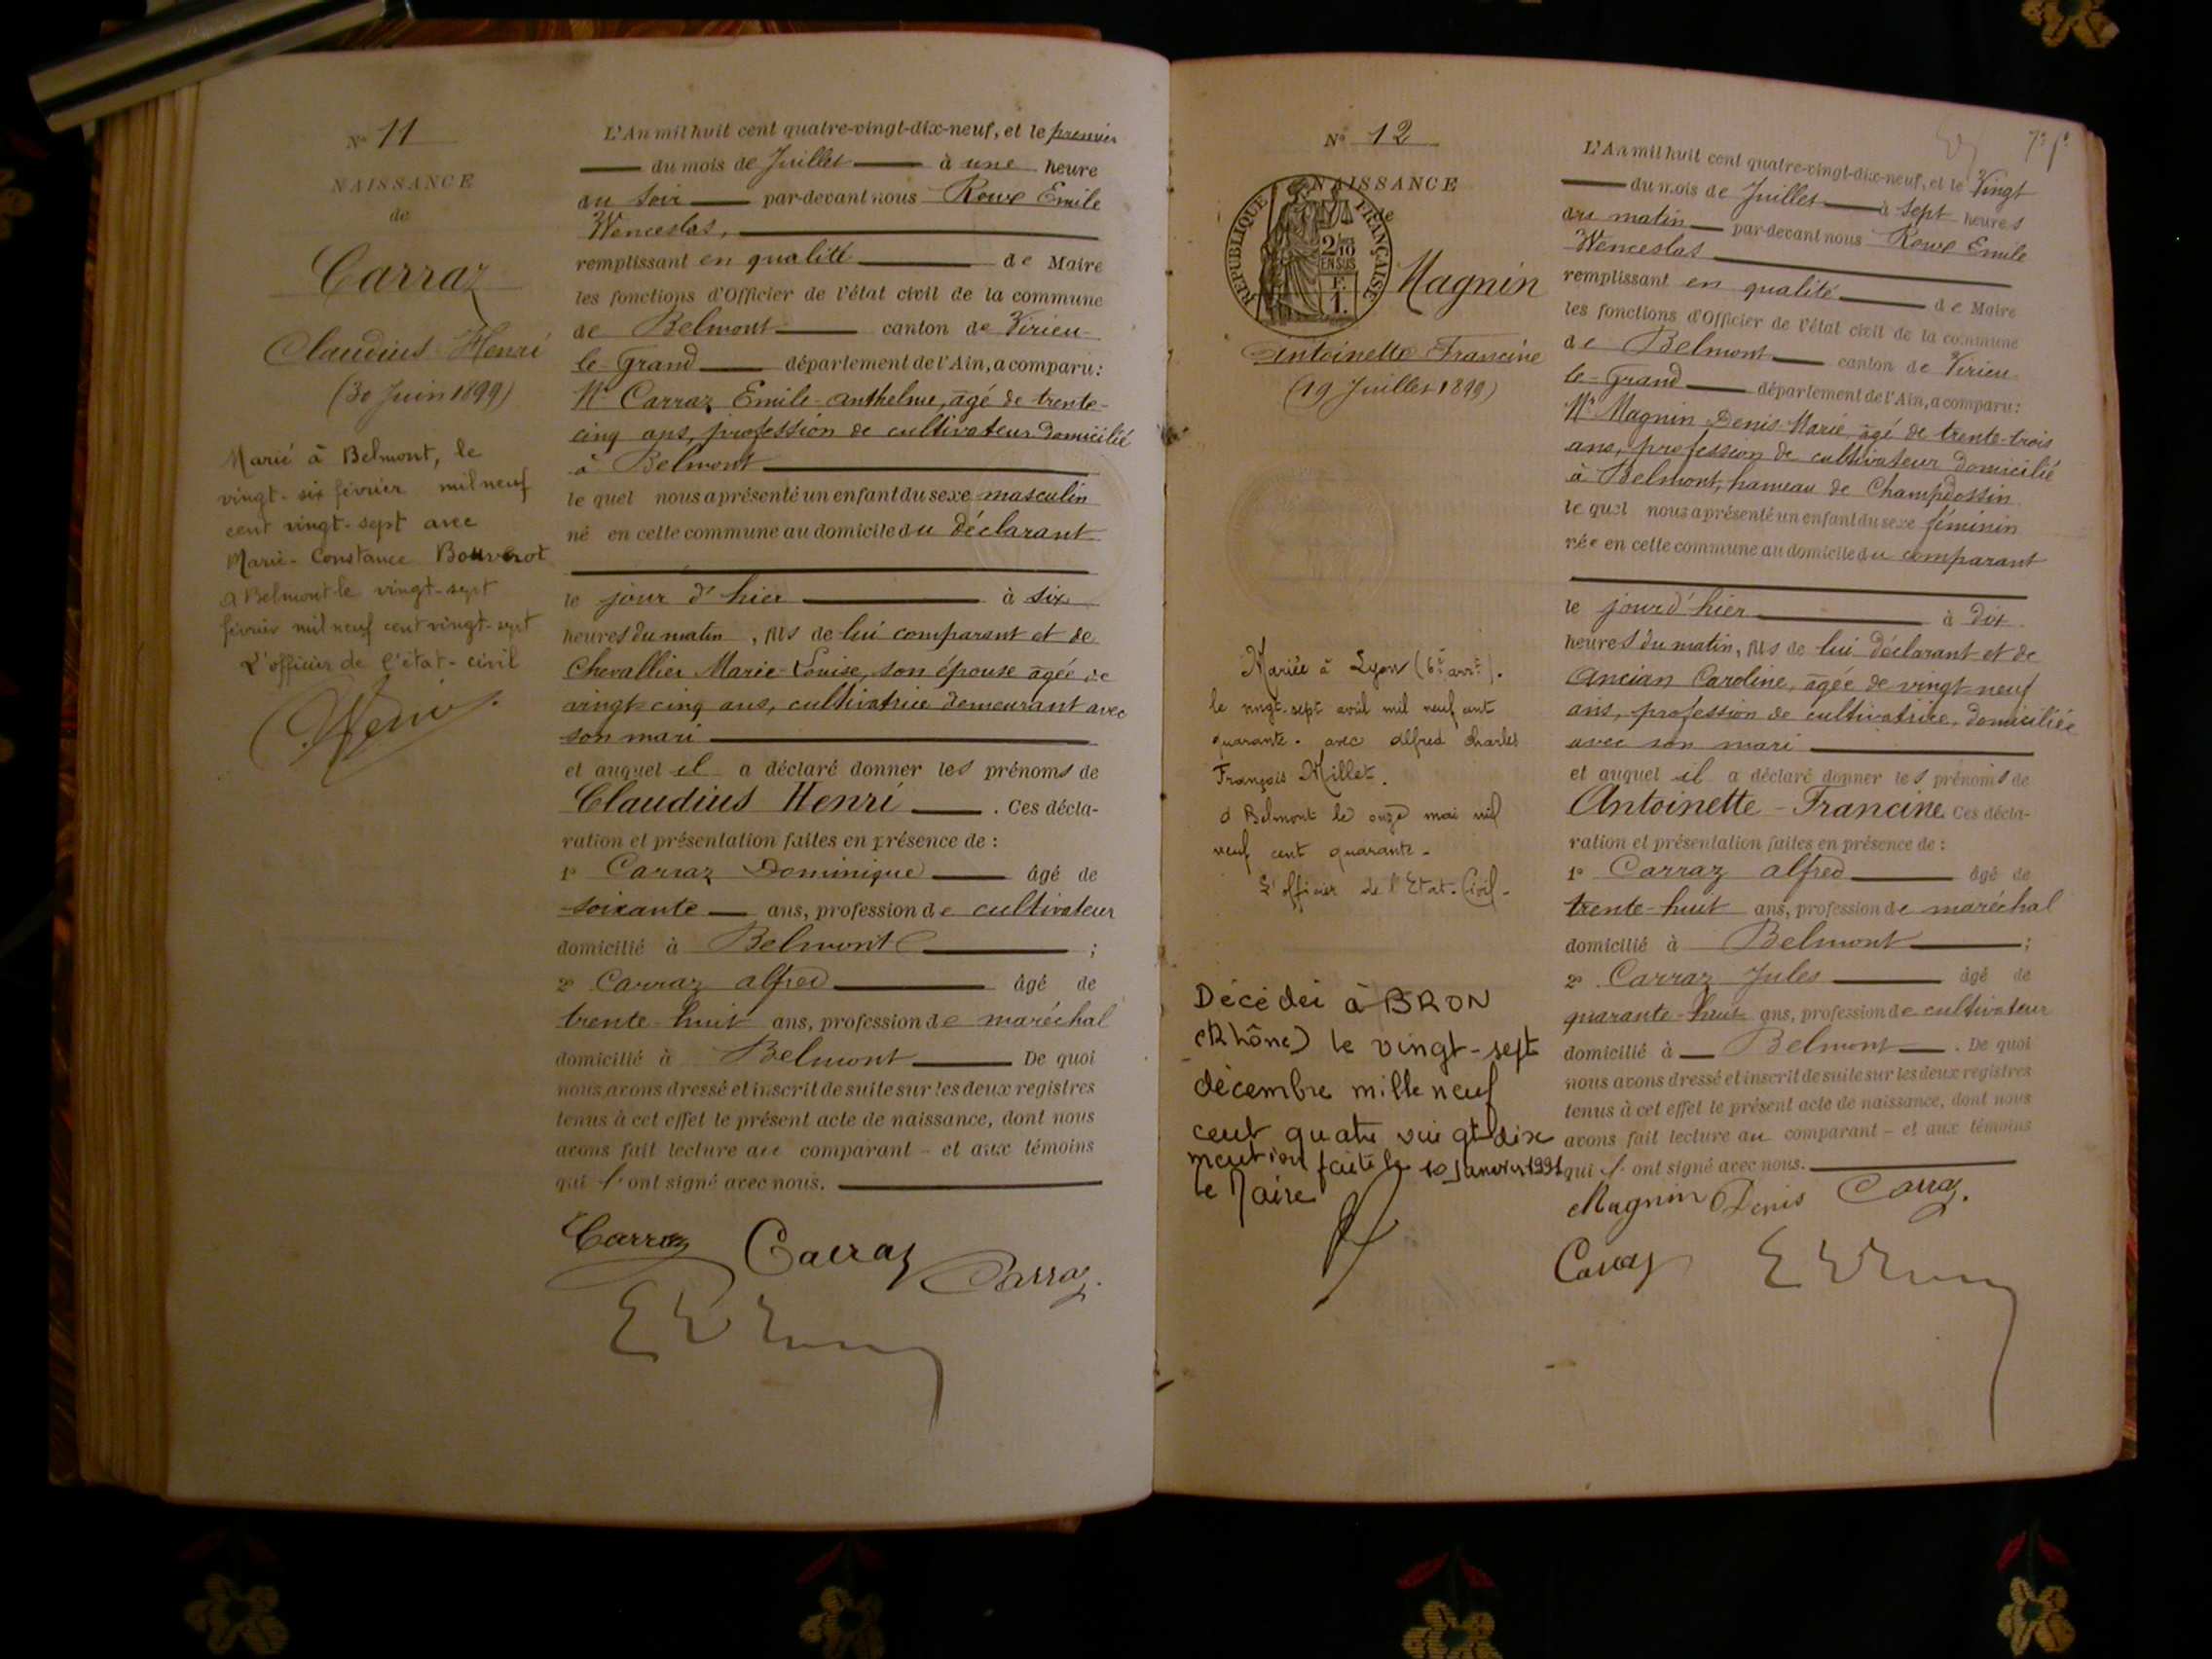 N° 11
NAISSANCE
de
Carraz
Claudius Henri
(30 Juin 1899)
Marié à Belmont, le
vingt-six février mil neuf
cent vingt-sept avec
Marie-Constance Bouvrot
A Belmont le vingt-sept
février mil neuf cent vingt-sept
L'officier de l'état-civil
L'An mil huit cent quatre-vingt-dix-neuf, et le premier
du mois de Juillet à une heure
du soir par-devant nous Roux Emile
Wenceslas,
remplissant en qualité de Maire
les fonctions d'Officier de l'état civil de la commune
de Belmont canton de Virieu
le-Grand département de l'Ain, a comparu:
Mr Carraz Emile-Anthelme, âgé de trente-
cinq ans, profession de cultivateur domicilié
à Belmont
le quel nous a présenté un enfant du sexe masculin
né en cette commune au domicile du déclarant
le jour d'hier à six
heures du matin, fils de lui comparant et de
Chevallier Marie-Louise, son épouse âgée de
vingt-cinq ans, cultivatrice demeurant avec
son mari
et auquel il a déclaré donner les prénoms de
Claudius Henri. Ces décla-
ration et présentation faites en présence de :
1° Carraz Dominique âgé de
soixante ans, profession de cultivateur
domicilié à Belmont ;
2° Carraz Alfred âgé de
trente-huit ans, profession de maréchal
domicilié à Belmont De quoi
nous avons dressé et inscrit de suite sur les deux registres
tenus à cet effet le présent acte de naissance, dont nous
avons fait lecture au comparant - et aux témoins
qui l'ont signé avec nous.
Carraz Carraz Carraz.
N° 12
NAISSANCE
de
RÉPUBLIQUE FRANÇAISE
2/10
EN SUS
F.
1.
Magnin
Antoinette Francine
(19 Juillet 1899)
Mariée à Lyon (6e arrt).
le vingt-sept avril mil neuf cent
quarante. avec Alfred Charles
François Millet.
à Belmont le onze mai mil
neuf cent quarante -
L'officier de l'Etat-Civil -
Décédéi à BRON
(Rhône) le vingt-sept
décembre mille neuf
cent quatre vingt dix
mention faite le 10 Janvier 1991
le Maire
7e f°
L'An mil huit cent quatre-vingt-dix-neuf, et le Vingt
du mois de Juillet à sept heures
du matin par-devant nous Roux Emile
Wenceslas
remplissant en qualité de Maire
les fonctions d'Officier de l'état civil de la commune
de Belmont canton de Virieu
le-Grand département de l'Ain, a comparu:
Mr Magnin Denis-Marie âgé de trente-trois
ans, profession de cultivateur domicilié
à Belmont, hameau de Champdossin
le quel nous a présenté un enfant du sexe féminin
née en cette commune au domicile du comparant
le jour d'hier à dix
heures du matin, fils de lui déclarant et de
Ancian Caroline, âgée de vingt-neuf
ans, profession de cultivatrice, domiciliée
avec son mari
et auquel il a déclaré donner les prénoms de
Antoinette-Francine. Ces décla-
ration et présentation faites en présence de :
1° Carraz Alfred âgé de
trente-huit ans, profession de maréchal
domicilié à Belmont ;
2° Carraz Jules âgé de
quarante-huit ans, profession de cultivateur
domicilié à Belmont. De quoi
nous avons dressé et inscrit de suite sur les deux registres
tenus à cet effet le présent acte de naissance, dont nous
avons fait lecture au comparant - et aux témoins
qui l'ont signé avec nous.
Magnin Denis Carraz.
Carraz